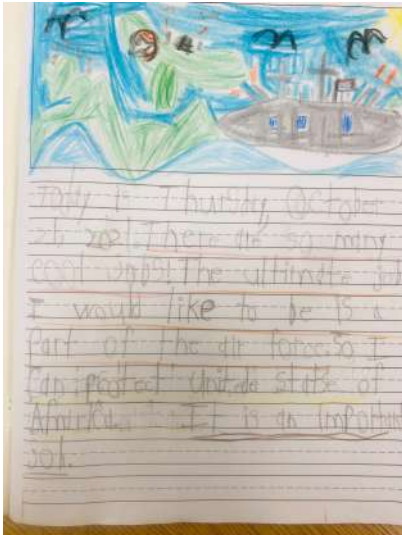 Today is Thursday, October
21, 2021. There are so many
cool jobs! The ultimate job
I would like to be is a
Part of the air force. So I
Can protect Unitede states of
Amirica. It is an important
Job.